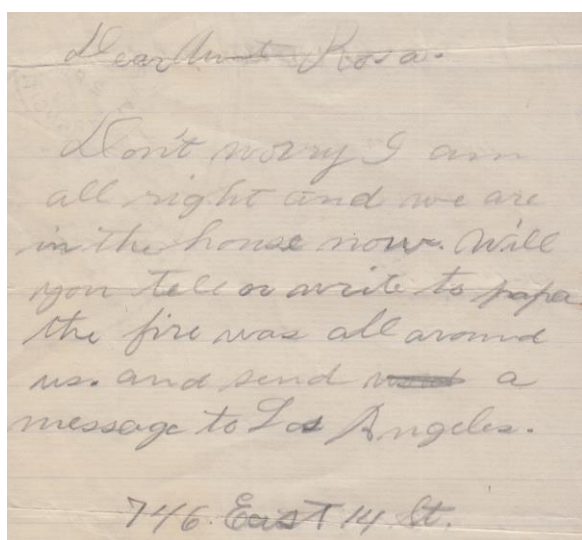 Dear Aunt Rosa.
Don't worry I am
all right and we are
in the house now. Will
you tell or write to papa
the fire was all around
us. and send a
message to Los Angeles.
746 East 14 St.